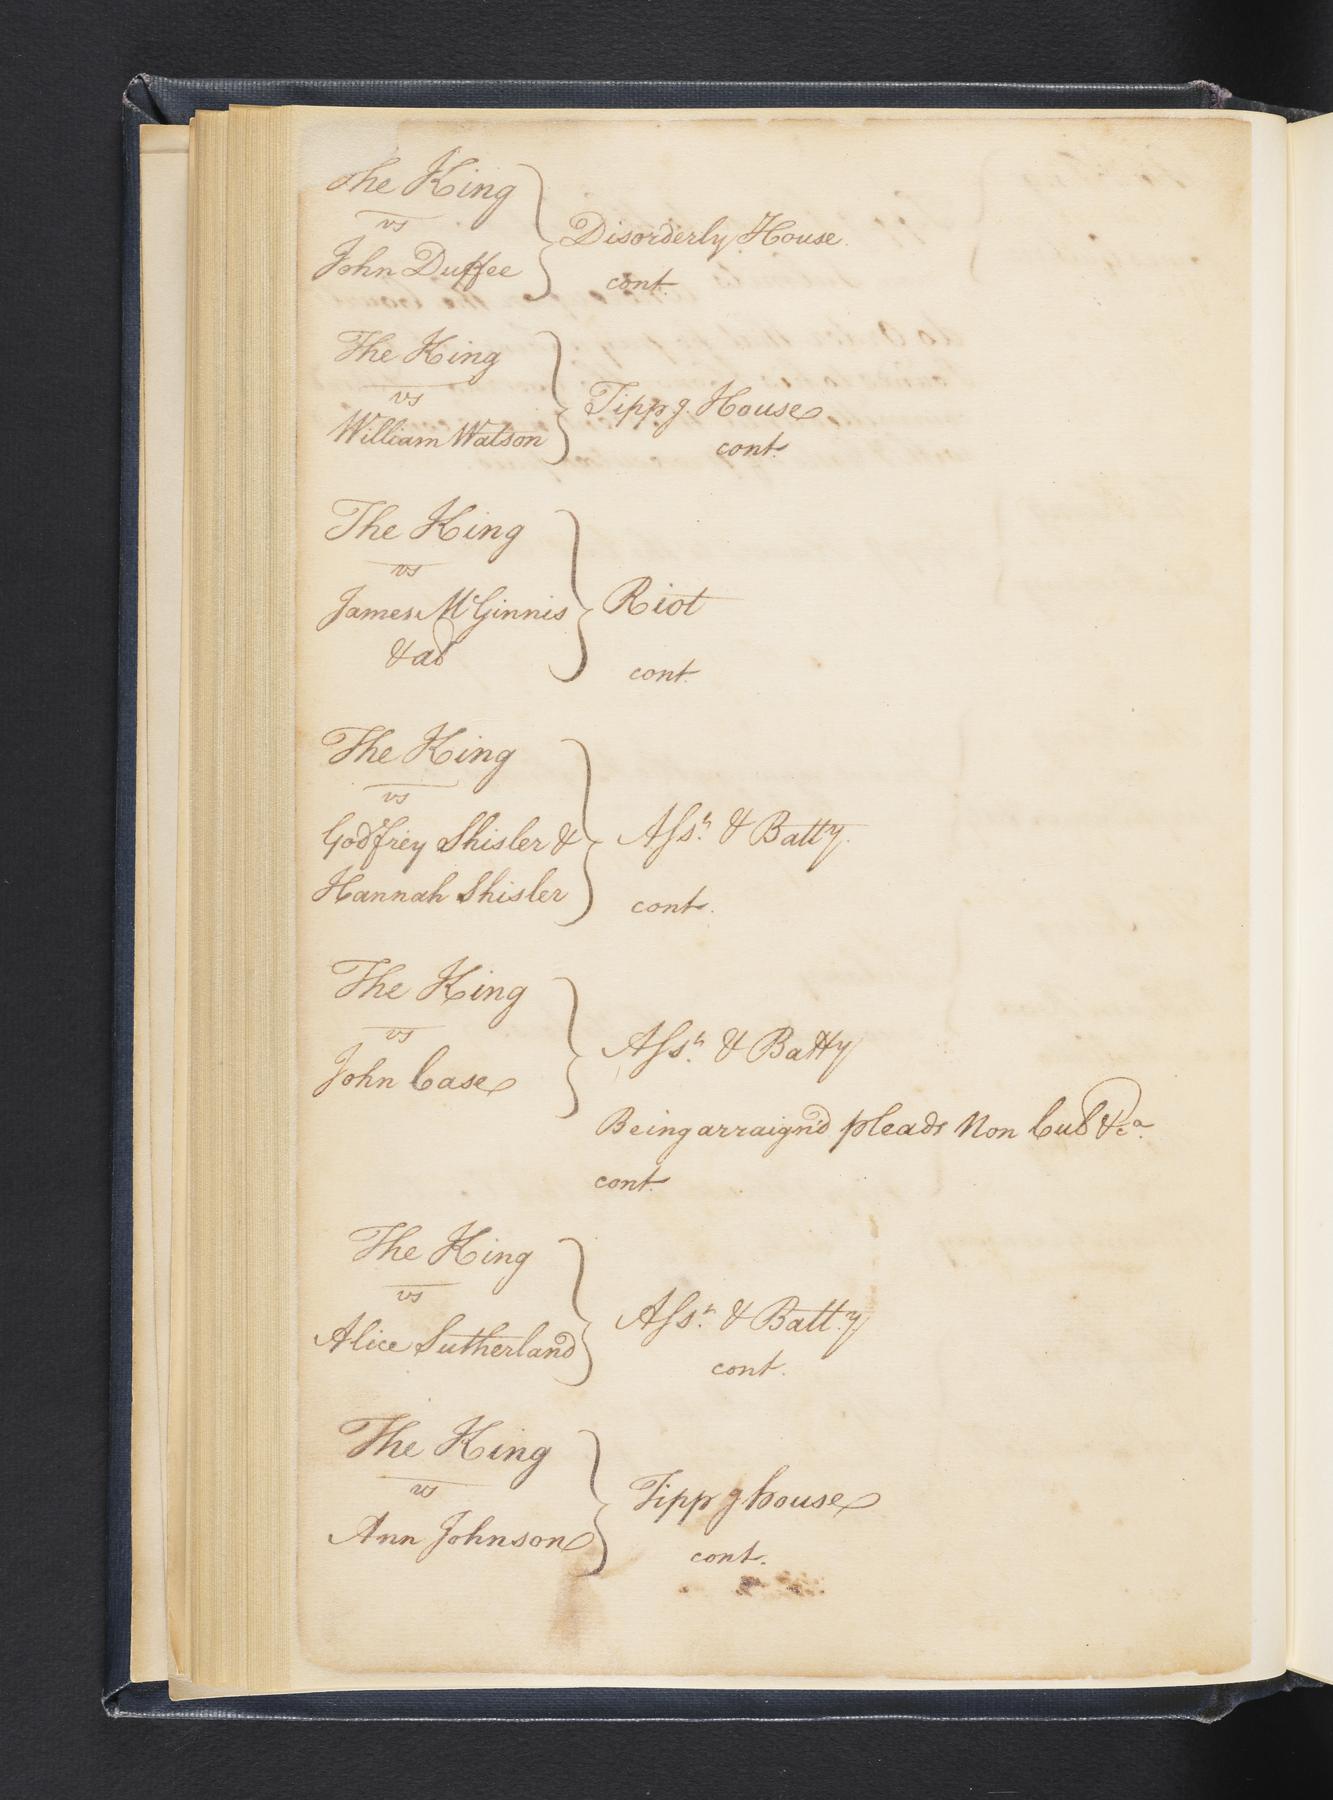 The King
vs
John Duffee
Disorderly House.
cont.
The King
vs
William Watson
Tippg. House
cont.
The King
vs
James McGinnis
& al
Riot
cont.
The King
vs
Godfrey Shisler &
Hannah Shisler
Asst. & Batty.
cont.
The King
vs
John Case
Asst. & Batty
Being arraign'd pleads Non Cul &ca.
cont.
The King
vs
Alice Sutherland
Asst. & Batt.y
cont.
The King
vs
Ann Johnson
Tippg house
cont.